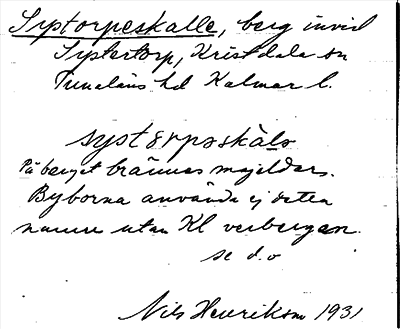 Systorpeskalle, berg invid
Systertorp, Kristdala sn
Tunaläns hd Kalmar l.
systərpəskàlə
På berget brännes majeldar.
Byborna använda ej detta
namn utan Kl verbergen.
se d.o
Nils Henrikson 1931